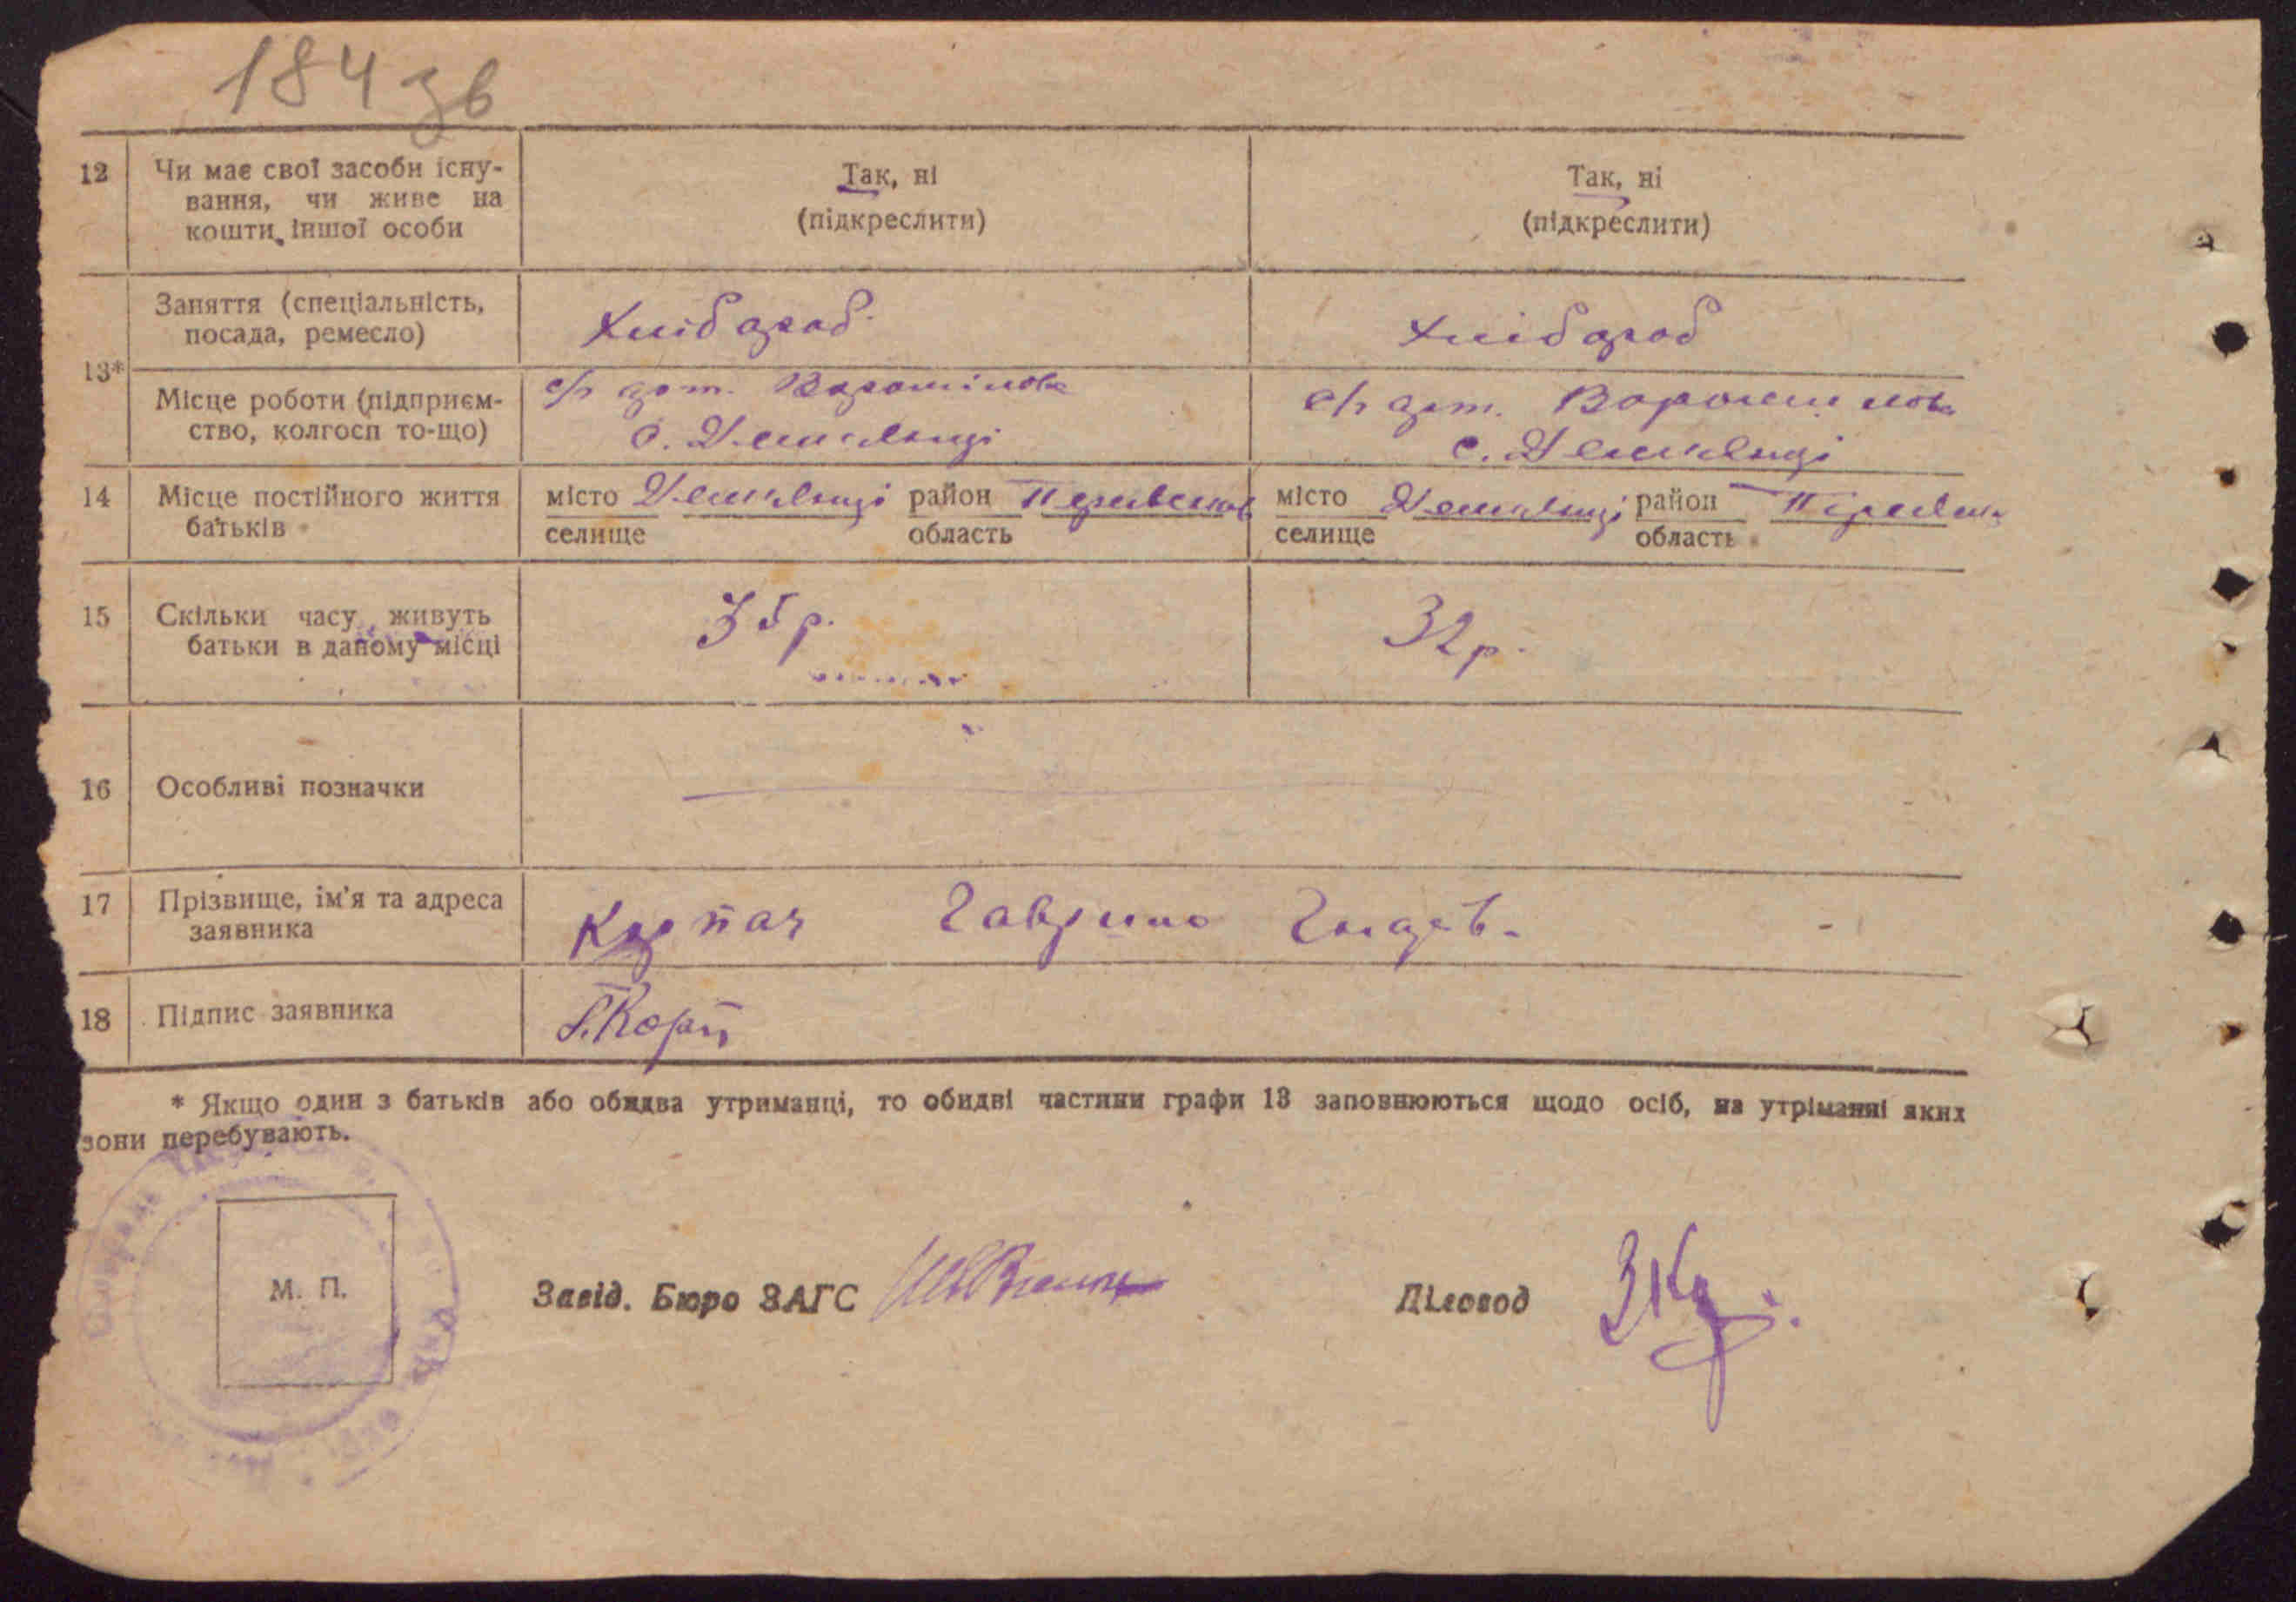 184 зв
12 Чи має свої засоби існу-
вання, чи живе на
кошти іншої особи
Так, ні
(підкреслити)
Так, ні
(підкреслити)
13*
Заняття (спеціальність,
посада, ремесло)
Хлібороб
Хлібороб
Місце роботи (підприєм-
ство, колгосп то-що)
с/г арт. Ворошілова
с. Демківці
с/г арт. Ворошилова
с. Демківці
14 Місце постійного життя
батьків
місто Демківці район
селище область
місто Демківці район
селище область
15 Скільки часу живуть
батьки в даному місці
35 р.
32 р.
16 Особливі позначки
17 Прізвище, ім'я та адреса
заявника
Корпач Гаврило
18 Підпис заявника
Г. Корп
* Якщо один з батьків або обидва утриманці, то обидві частини графи 13 заповнюються щодо осіб, на утріманні яких
вони перебувають.
М. П.
Завід. Бюро ЗАГС
Діловод